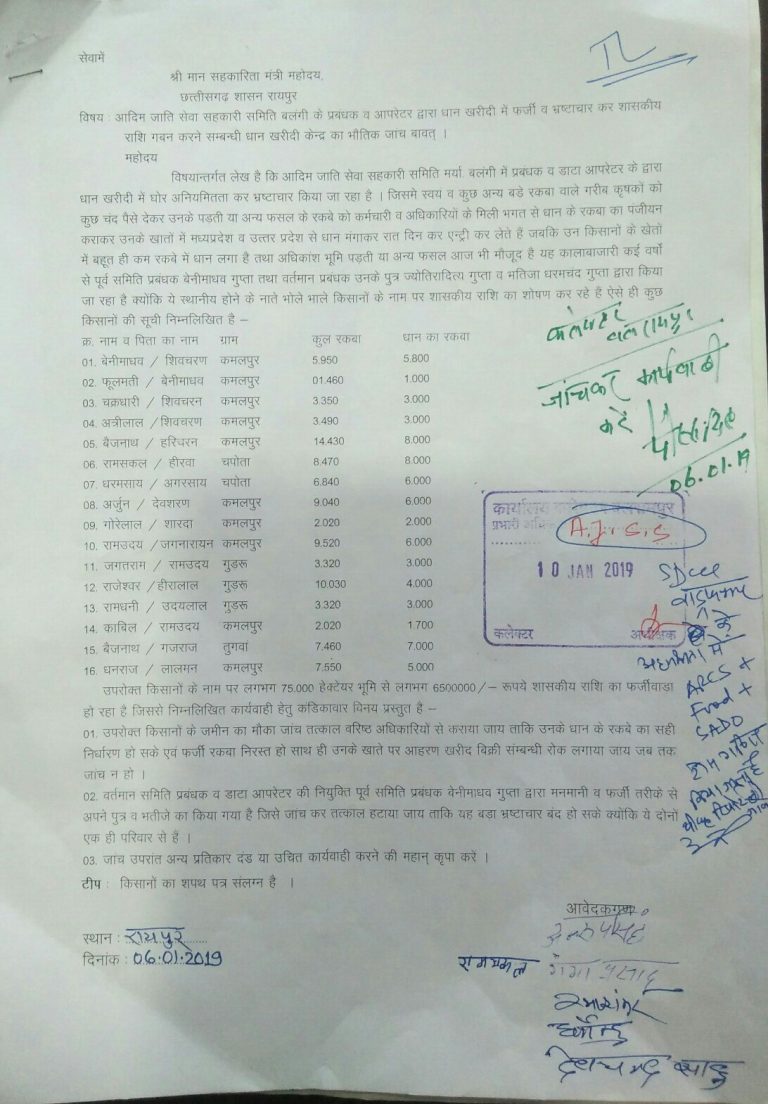 TL
सेवामें
श्री मान सहकारिता मंत्री महोदय,
छत्तीसगढ शासन रायपुर
विषय : आदिम जाति सेवा सहकारी समिति बलंगी के प्रबंधक व आपरेटर द्वारा धान खरीदी में फर्जी व भ्रष्टाचार कर शासकीय
राशि गबन करने सम्बन्धी धान खरीदी केन्द्र का भौतिक जांच बावत् ।
महोदय
विषयान्तर्गत लेख है कि आदिम जाति सेवा सहकारी समिति मर्या. बलंगी में प्रबंधक व डाटा आपरेटर के द्वारा
धान खरीदी में घोर अनियमितता कर भ्रष्टाचार किया जा रहा है । जिसमे स्वयं व कुछ अन्य बडे रकबा वाले गरीब कृषकों को
कुछ चंद पैसे देकर उनके पड़ती या अन्य फसल के रकबे को कर्मचारी व अधिकारियों के मिली भगत से धान के रकबा का पंजीयन
कराकर उनके खातों में मध्यप्रदेश व उत्तर प्रदेश से धान मंगाकर रात दिन कर एन्ट्री कर लेते हैं जबकि उन किसानों के खेतों
में बहूत ही कम रकबे में धान लगा है तथा अधिकांश भूमि पड़ती या अन्य फसल आज भी मौजूद है यह कालाबाजारी कई वर्षो
से पूर्व समिति प्रबंधक बेनीमाधव गुप्ता तथा वर्तमान प्रबंधक उनके पुत्र ज्योतिरादित्य गुप्ता व भतिजा धरमचंद गुप्ता द्वारा किया
जा रहा है क्योंकि ये स्थानीय होने के नाते भोले भाले किसानों के नाम पर शासकीय राशि का शोषण कर रहे हैं ऐसे ही कुछ
किसानों की सूची निम्नलिखित है –
क्र. नाम व पिता का नाम ग्राम कुल रकबा धान का रकवा
01. बेनीमाधव / शिवचरण कमलपुर 5.950 5.800
02. फूलमती / बेनीमाधव कमलपुर 01.460 1.000
03. चक्रधारी / शिवचरन कमलपुर 3.350 3.000
04. अत्रीलाल / शिवचरण कमलपुर 3.490 3.000
05. बैजनाथ / हरिचरन कमलपुर 14.430 8.000
06. रामसकल / हीरवा चपोता 8.470 8.000
07. धरमसाय / अगरसाय चपोता 6.840 6.000
08. अर्जुन / देवशरण कमलपुर 9.040 6.000
09. गोरेलाल / शारदा कमलपुर 2.020 2.000
10. रामउदय / जगनारायन कमलपुर 9.520 6.000
11. जगतराम / रामउदय गुडरू 3.320 3.000
12. राजेश्वर / हीरालाल गुडरू 10.030 4.000
13. रामधनी / उदयलाल गुडरू 3.320 3.000
14. काबिल / रामउदय कमलपुर 2.020 1.700
15. बैजनाथ / गजराज तुगवां 7.460 7.000
16. धनराज / लालमन कमलपुर 7.550 5.000
कलेक्टर
बलरामपुर
जांचकर कार्यवाही
करें
06.01.19
कार्यालय
A.J.S.S
10 JAN 2019
कलेक्टर अधीक्षक
के
अध्यक्षता में
ARCS +
Food +
SADO
उपरोक्त किसानों के नाम पर लगभग 75.000 हेक्टेयर भूमि से लगभग 6500000/– रूपये शासकीय राशि का फर्जीवाडा
हो रहा है जिससे निम्नलिखित कार्यवाही हेतु कंडिकावार विनय प्रस्तुत है –
01. उपरोक्त किसानों के जमीन का मौका जांच तत्काल वरिष्ठ अधिकारियों से कराया जाय ताकि उनके धान के रकबे का सही
निर्धारण हो सके एवं फर्जी रकबा निरस्त हो साथ ही उनके खाते पर आहरण खरीद बिक्री संम्बन्धी रोक लगाया जाय जब तक
जांच न हो ।
02. वर्तमान समिति प्रबंधक व डाटा आपरेटर की नियुक्ति पूर्व समिति प्रबंधक बेनीमाधव गुप्ता द्वारा मनमानी व फर्जी तरीके से
अपने पुत्र व भतीजे का किया गया है जिसे जांच कर तत्काल हटाया जाय ताकि यह बडा भ्रष्टाचार बंद हो सके क्योंकि ये दोनों
एक ही परिवार से हैं ।
03. जांच उपरांत अन्य प्रतिकार दंड या उचित कार्यवाही करने की महान् कृपा करें ।
टीप : किसानों का शपथ पत्र संलग्न है ।
आवेदकगण
स्थान : रायपुर
दिनांक : 06.01.2019
रामसकल गंगा प्रसाद